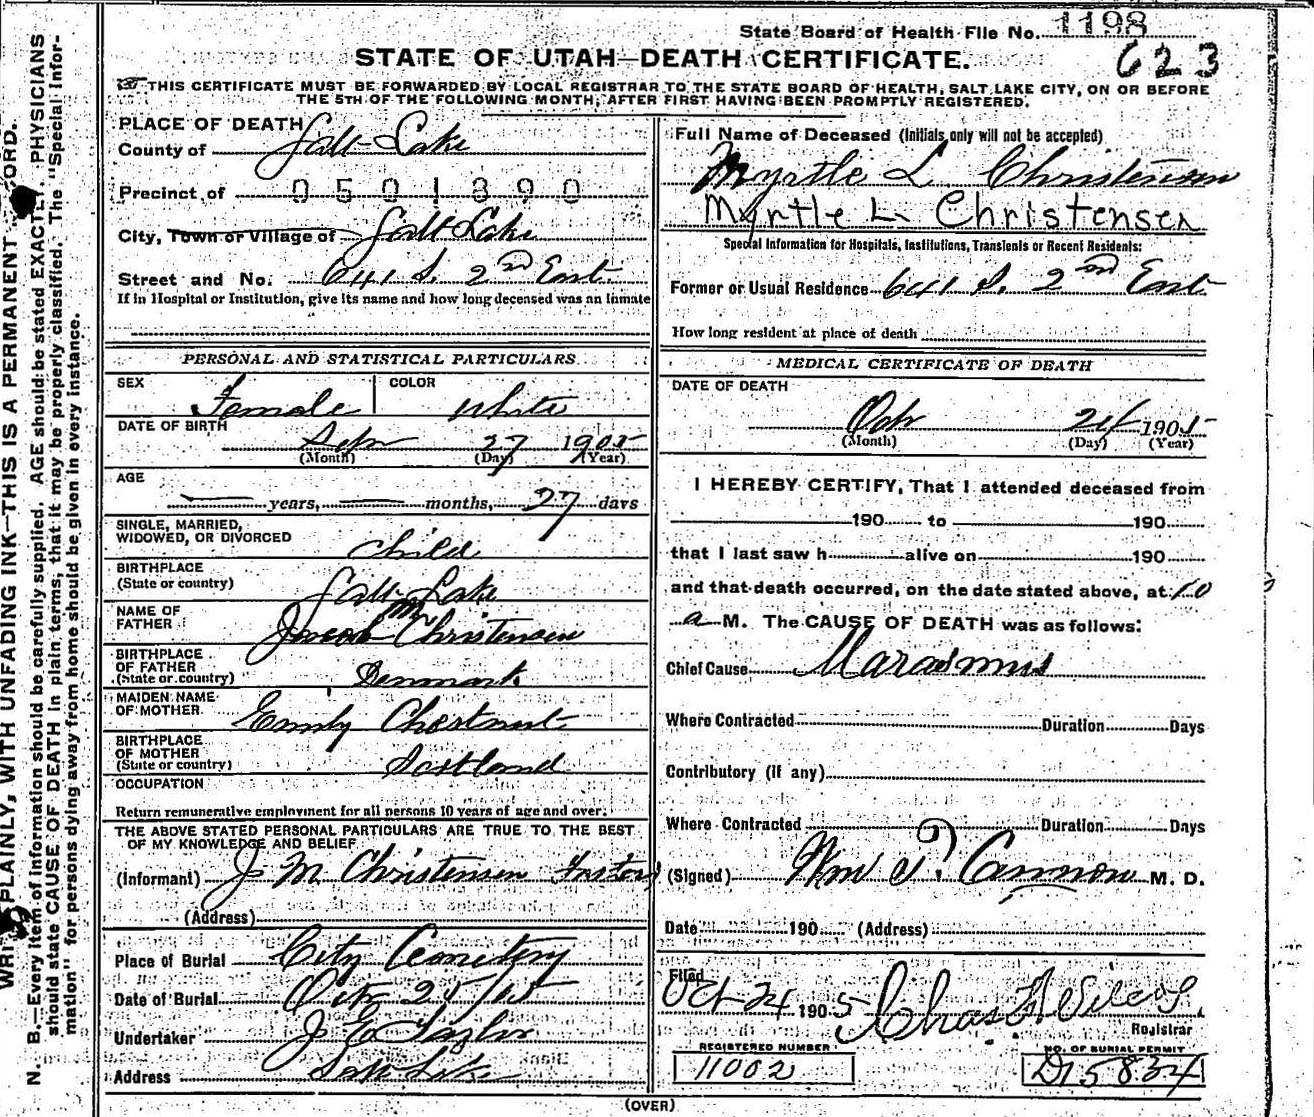 State Board of Health File No. 1198
623
STATE OF UTAH—DEATH CERTIFICATE.
THIS CERTIFICATE MUST BE FORWARDED BY LOCAL REGISTRAR TO THE STATE BOARD OF HEALTH, SALT LAKE CITY, ON OR BEFORE
THE 5TH OF THE FOLLOWING MONTH, AFTER FIRST HAVING BEEN PROMPTLY REGISTERED.
PLACE OF DEATH
County of Salt Lake
Precinct of 0501890
City, Town or Village of Salt Lake
Street and No. 641 S. 2nd East
If in Hospital or Institution, give its name and how long deceased was an inmate
PERSONAL AND STATISTICAL PARTICULARS
SEX Female
COLOR White
DATE OF BIRTH
Sep 27 1905
(Month) (Day) (Year)
AGE
years, months, 27 days
SINGLE, MARRIED,
WIDOWED, OR DIVORCED Child
BIRTHPLACE
(State or country) Salt Lake
NAME OF
FATHER Jacob M Christensen
BIRTHPLACE
OF FATHER
(State or country) Denmark
MAIDEN NAME
OF MOTHER Emily Chestnut
BIRTHPLACE
OF MOTHER
(State or country) Scotland
OCCUPATION
Return remunerative employment for all persons 10 years of age and over.
THE ABOVE STATED PERSONAL PARTICULARS ARE TRUE TO THE BEST
OF MY KNOWLEDGE AND BELIEF
(Informant) J M Christensen
(Address)
Place of Burial City Cemetery
Date of Burial Oct 25/05
Undertaker J E Taylor
Address Salt Lake
Full Name of Deceased (Initials only will not be accepted)
Myrtle L Christensen
Myrtle L. Christensen
Special Information for Hospitals, Institutions, Transients or Recent Residents:
Former or Usual Residence 641 S. 2nd East
How long resident at place of death
MEDICAL CERTIFICATE OF DEATH
DATE OF DEATH
Oct 24 1905
(Month) (Day) (Year)
I HEREBY CERTIFY, That I attended deceased from
190 to 190
that I last saw h alive on 190
and that death occurred, on the date stated above, at 10
a M. The CAUSE OF DEATH was as follows:
Chief Cause Marasmus
Where Contracted Duration Days
Contributory (if any)
Where Contracted Duration Days
(Signed) Wm T. Cannon M. D.
Date 190 (Address)
Filed
Oct 24 1905 Chas F Wilcox,
Registrar
REGISTERED NUMBER
11002
NO. OF BURIAL PERMIT
D15834
(OVER)
WRITE PLAINLY, WITH UNFADING INK—THIS IS A PERMANENT
N. B.—Every item of information should be carefully supplied. AGE should be stated EXACTLY. PHYSICIANS
should state CAUSE OF DEATH in plain terms, that it may be properly classified. The "Special Infor-
mation" for persons dying away from home should be given in every instance.